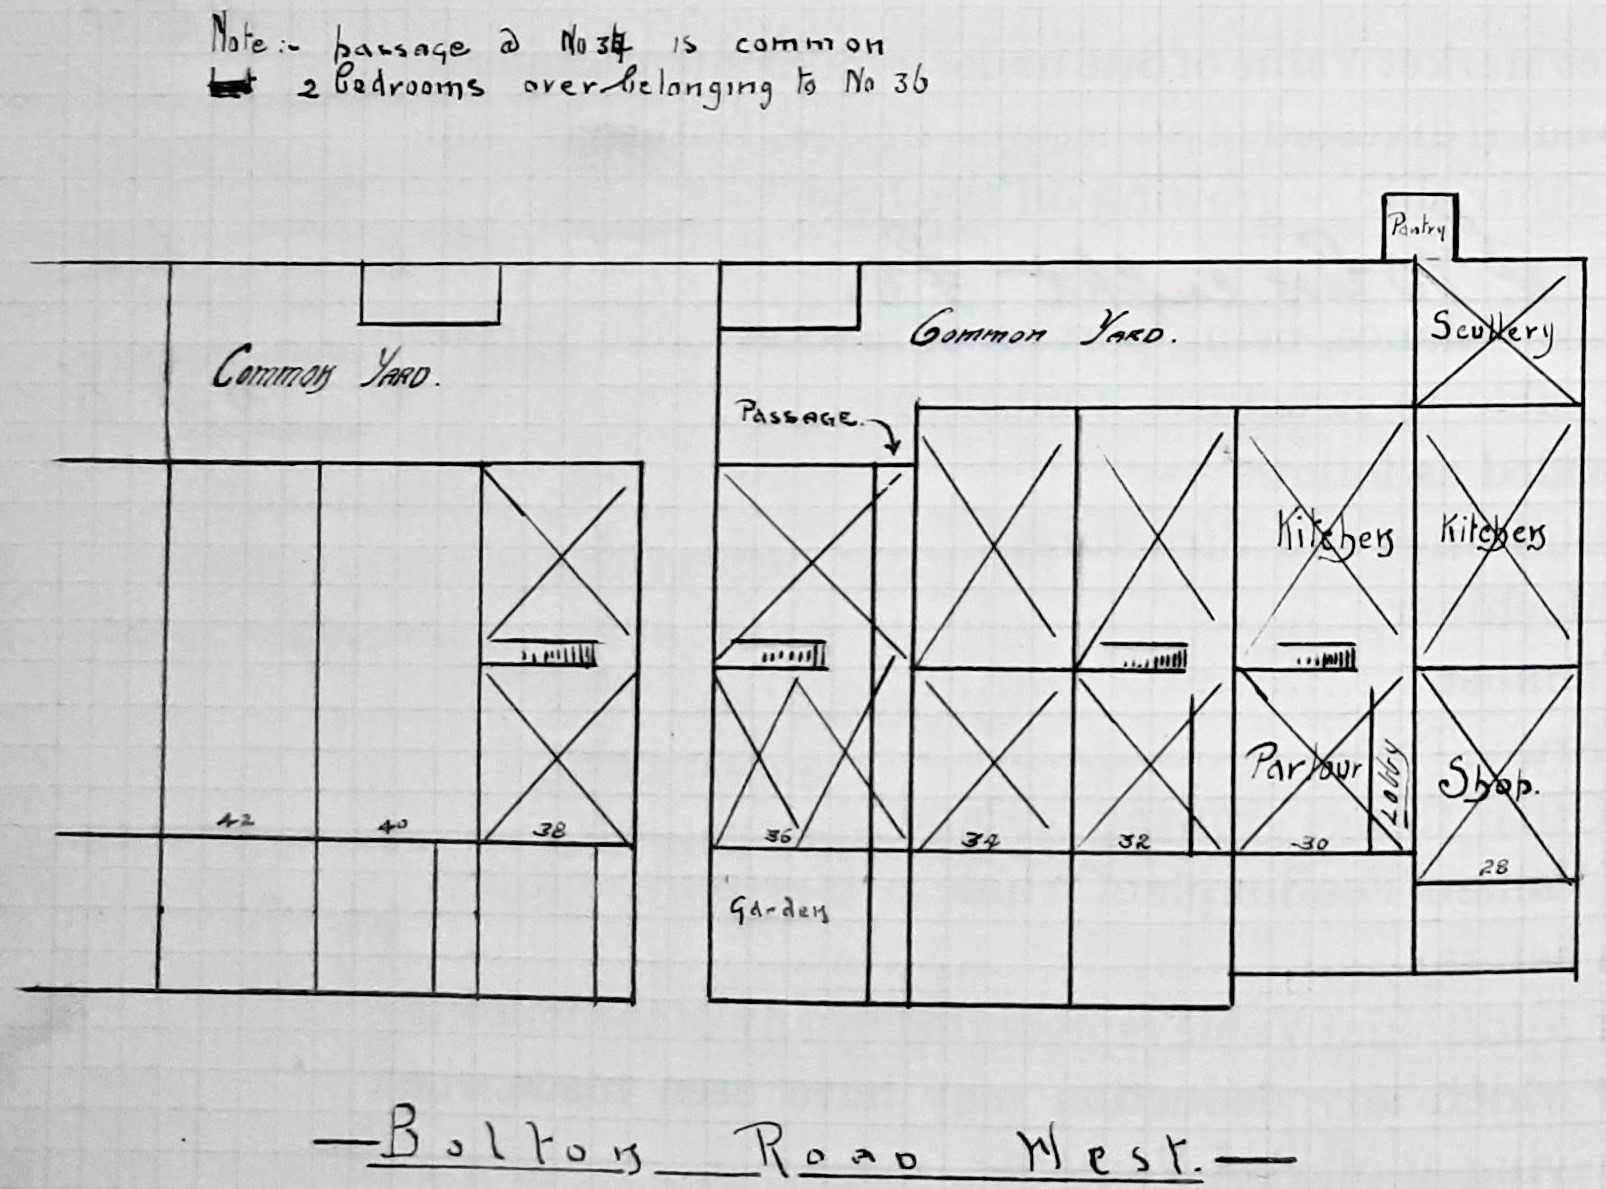 Note :- passage @ No 34 is common
2 bedrooms over belonging to No 36
Pantry
Scullery
Common Yard.
Common Yard.
Passage
Kitchen
Kitchen
Parlour
Lobby
Shop.
42
40
38
36
34
32
30
28
Garden
Bolton Road West.